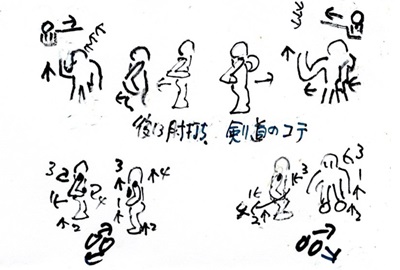 後ろ肘打ち 剣道のコテ
3 2 3 4
1 2 4 1
2 2
1 3 6 3
4 2 1
2